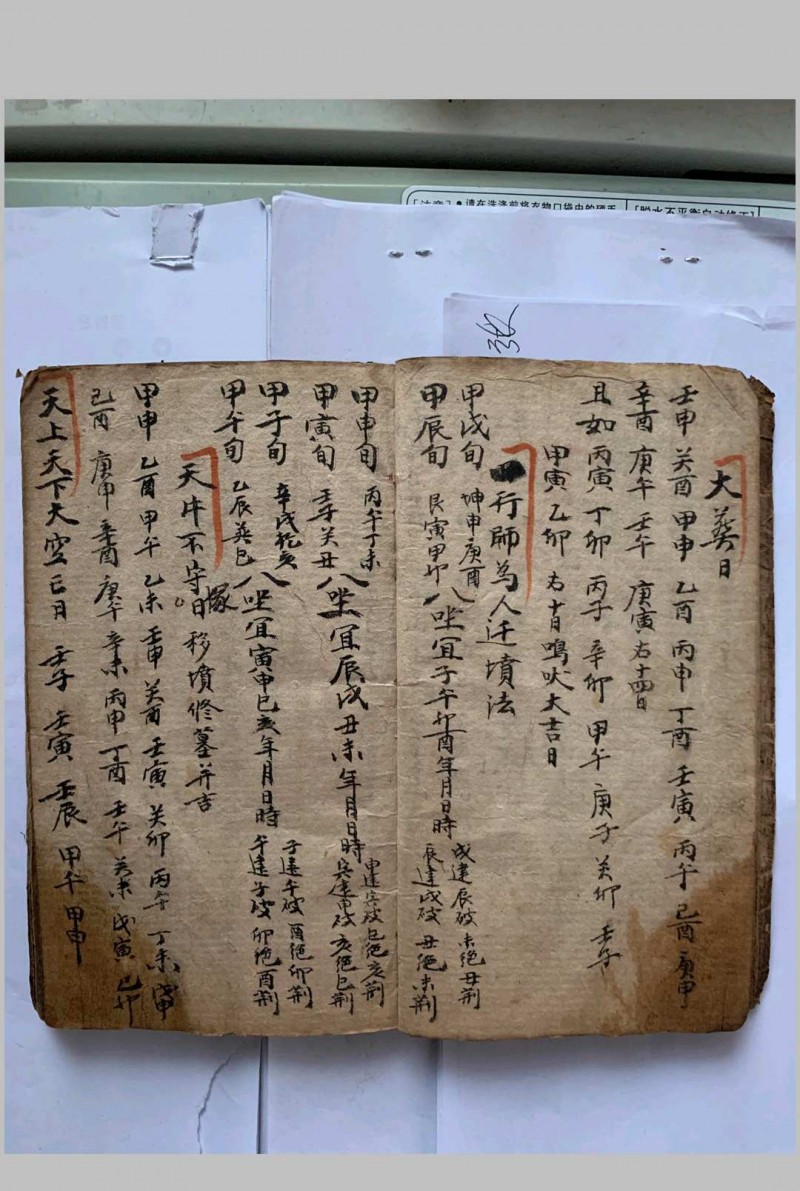 [注意]●请在洗涤前将衣物口袋中的硬币
[脱水不平衡自动修正]
大葬日
壬申 癸酉 甲申 乙酉 丙申 丁酉 壬寅 丙午 己酉 庚申
辛酉 庚午 壬午 庚寅 右十四日
且如 丙寅 丁卯 丙子 辛卯 甲午 庚子 癸卯 壬子
甲寅 乙卯 右十日鳴吠大吉日
行師為人迁墳法
甲戌旬 坤申庚酉
甲辰旬 艮寅甲卯
八坐宜子午卯酉年月日時
戌建辰破 未绝丑荆
辰建戌破 丑绝未荆
甲申旬 丙午丁未
甲寅旬 壬子癸丑
八坐宜辰戌丑未年月日時
申建寅破 巳绝亥荆
寅建申破 亥绝巳荆
甲子旬 辛戌乾亥
甲午旬 乙辰巽巳
八坐宜寅申巳亥年月日時
子建午破 酉绝卯荆
午建子破 卯绝酉荆
天牛不守塚日 移墳修墓并吉
甲申 乙酉 甲午 乙未 壬申 癸酉 壬寅 癸卯 丙午 丁未 戊申
己酉 庚申 辛酉 庚午 辛未 丙申 丁酉 壬午 癸未 戊寅 己卯
天上天下大空亡日 壬子 壬寅 壬辰 甲午 甲申